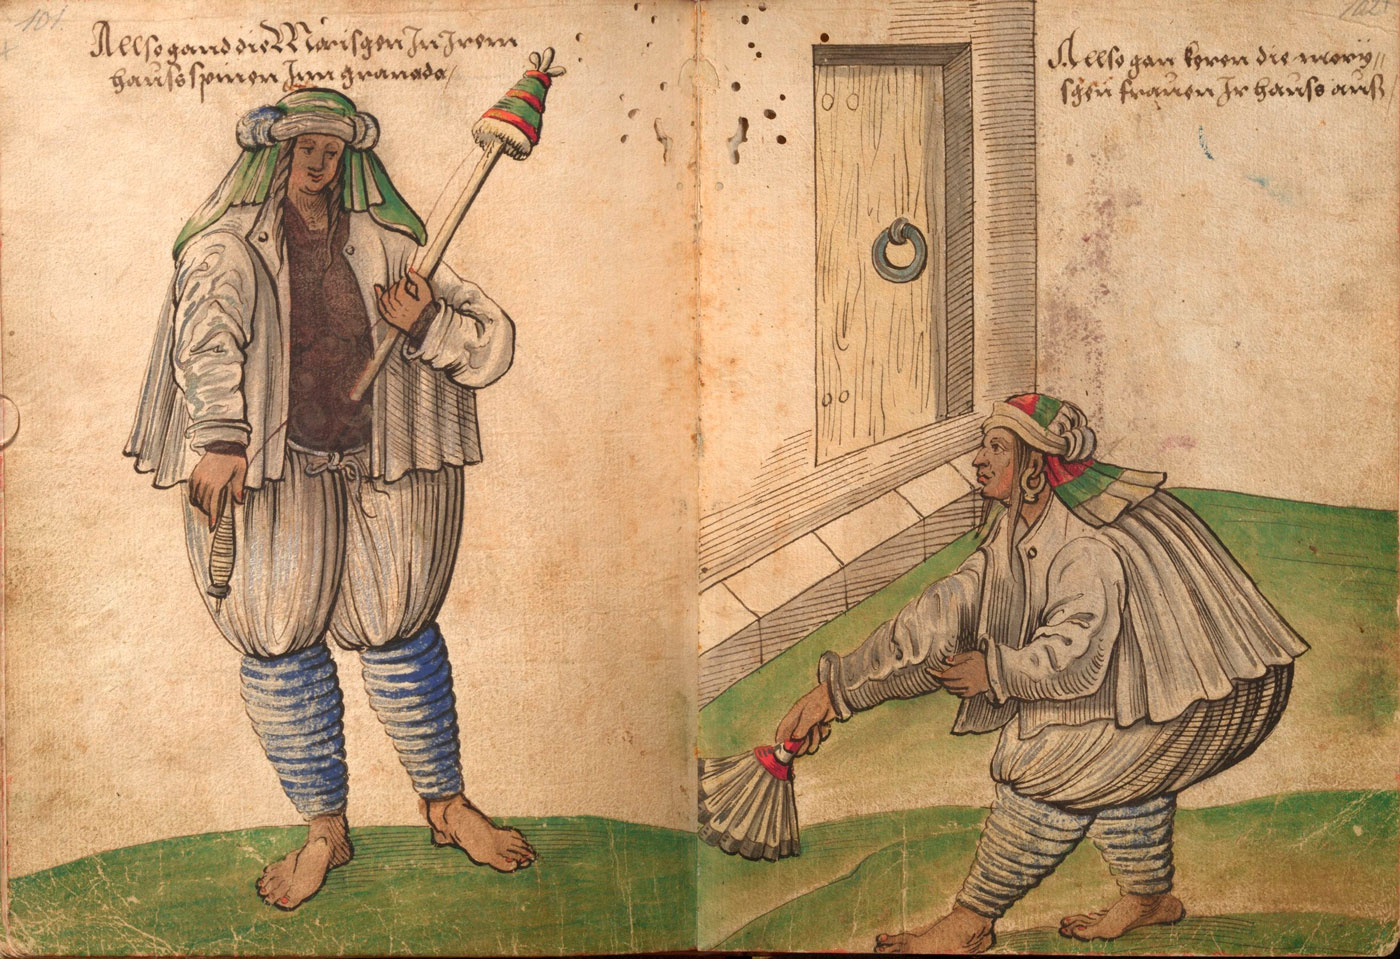 101.
Allso gand die Marisgen In Irem
hauss spinen Inn granada/
102
Allso gan keren die mory//
schen frauen Ir hauss auß